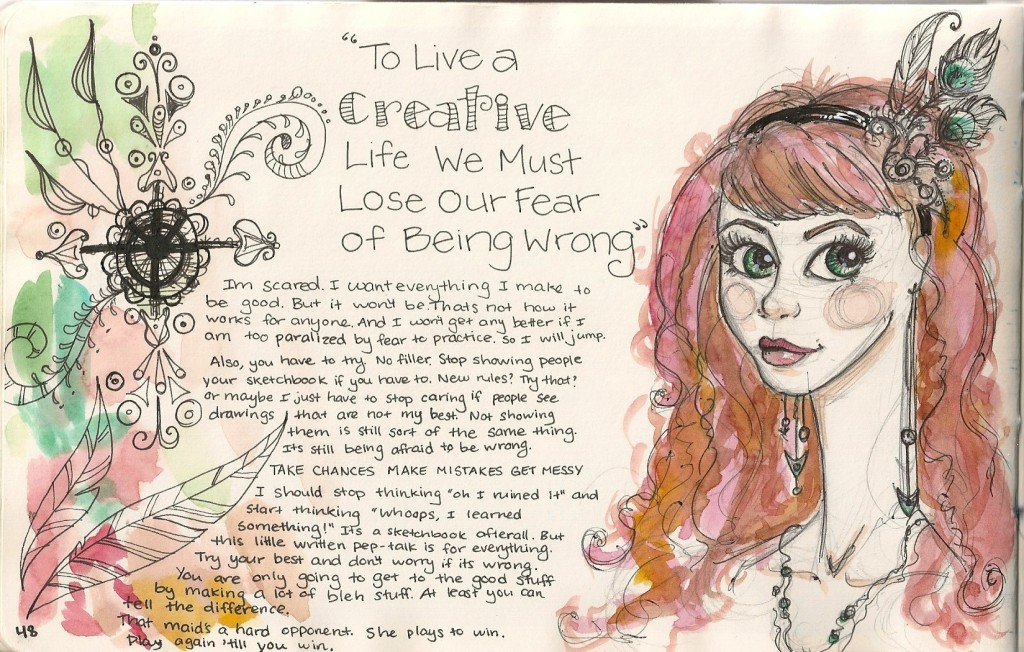 "To Live a
Creative
Life We Must
Lose Our Fear
of Being Wrong"
Im scared. I want everything I make to
be good. But it won't be. Thats not how it
works for anyone. And I won't get any better if I
am too paralized by fear to practice. So I will jump.
Also, you have to try. No filler. Stop showing people
your sketchbook if you have to. New rules? Try that?
or maybe I just have to stop caring if people see
drawings that are not my best. Not showing
them is still sort of the same thing.
Its still being afraid to be wrong.
TAKE CHANCES MAKE MISTAKES GET MESSY
I should stop thinking "oh I ruined it" and
start thinking "Whoops, I learned
something!" Its a sketchbook afterall. But
this little written pep-talk is for everything.
Try your best and dont worry if its wrong.
You are only going to get to the good stuff
by making a lot of bleh stuff. At least you can
tell the difference.
That maid's a hard opponent. She plays to win.
Play again 'till you win.
48